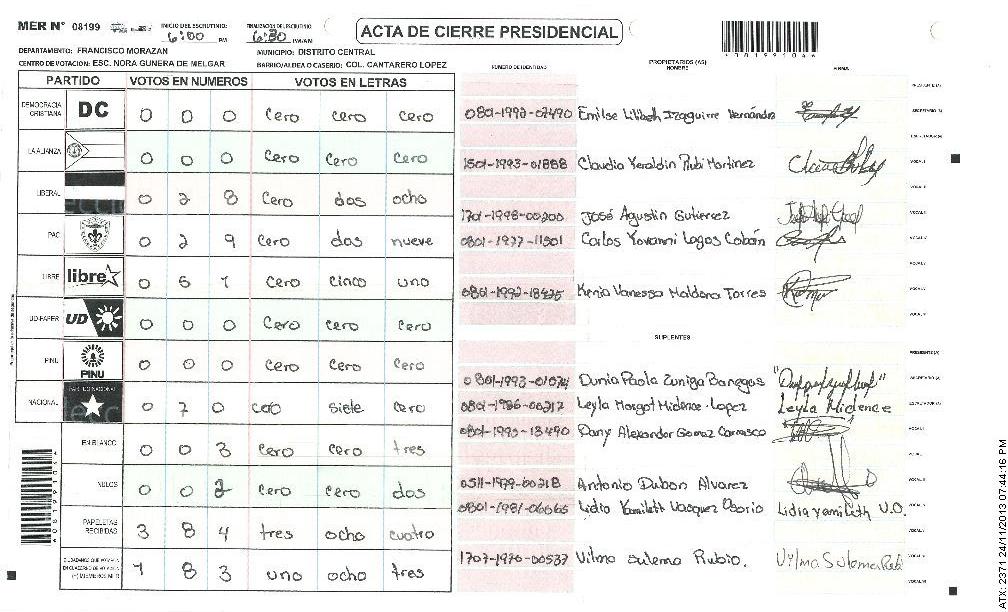 MER N° 08199 INICIO DEL ESCRUTINIO 6:00 PM FINALIZACION DEL ESCRUTINIO 6:30 PM/AM ACTA DE CIERRE PRESIDENCIAL
DEPARTAMENTO: FRANCISCO MORAZAN MUNICIPIO: DISTRITO CENTRAL
CENTRO DE VOTACION: ESC. NORA GUNERA DE MELGAR BARRIO/ALDEA O CASERIO: COL. CANTARERO LOPEZ
PARTIDO VOTOS EN NUMEROS VOTOS EN LETRAS
DEMOCRACIA CRISTIANA DC 0 0 0 Cero cero cero
LA ALIANZA 0 0 0 Cero Cero Cero
LIBERAL 0 2 8 Cero dos ocho
PAC 0 2 9 Cero dos nueve
LIBRE libre 0 5 1 Cero cinco uno
UD-FAPER UD 0 0 0 Cero cero cero
PINU PINU 0 0 0 Cero cero cero
NACIONAL PARTIDO NACIONAL 0 7 0 cero siete cero
EN BLANCO 0 0 3 Cero cero tres
NULOS 0 0 2 Cero cero dos
PAPELETAS RECIBIDAS 3 8 4 tres ocho cuatro
1 8 3 uno ocho tres
NUMERO DE IDENTIDAD PROPIETARIOS (AS) NOMBRE FIRMA
PRESIDENTE (A)
0801-1992-07490 Emilse Lilibeh Izaguirre Hernández SECRETARIO (A)
ESCRUTADOR (A)
1501-1993-01888 Claudia Yeraldin Rubi Martinez VOCAL I
VOCAL II
1701-1998-00200 José Agustin Gutierrez VOCAL III
0801-1977-11501 Carlos Yovanni Lagos Cobán VOCAL IV
VOCAL V
0801-1992-18425 Kenia Vanessa Maldona Torres
SUPLENTES
PRESIDENTE (A)
0801-1993-01074 Dunia Paola Zuniga Banegas SECRETARIO (A)
0801-1986-00217 Leyla Margot Midence Lopez Leyla Midence ESCRUTADOR (A)
0801-1990-13490 Dany Alexander Gomez Carrasco VOCAL I
0511-1999-00218 Antonio Dubon Alvarez
0801-1981-06665 Lidia Yamileth Vasquez Osorio Lidia Yamileth V.O.
1707-1976-00537 Vilma Sulema Rubio. Vilma Sulema Rub
ATX: 2371 24/11/2013 07:44:16 PM